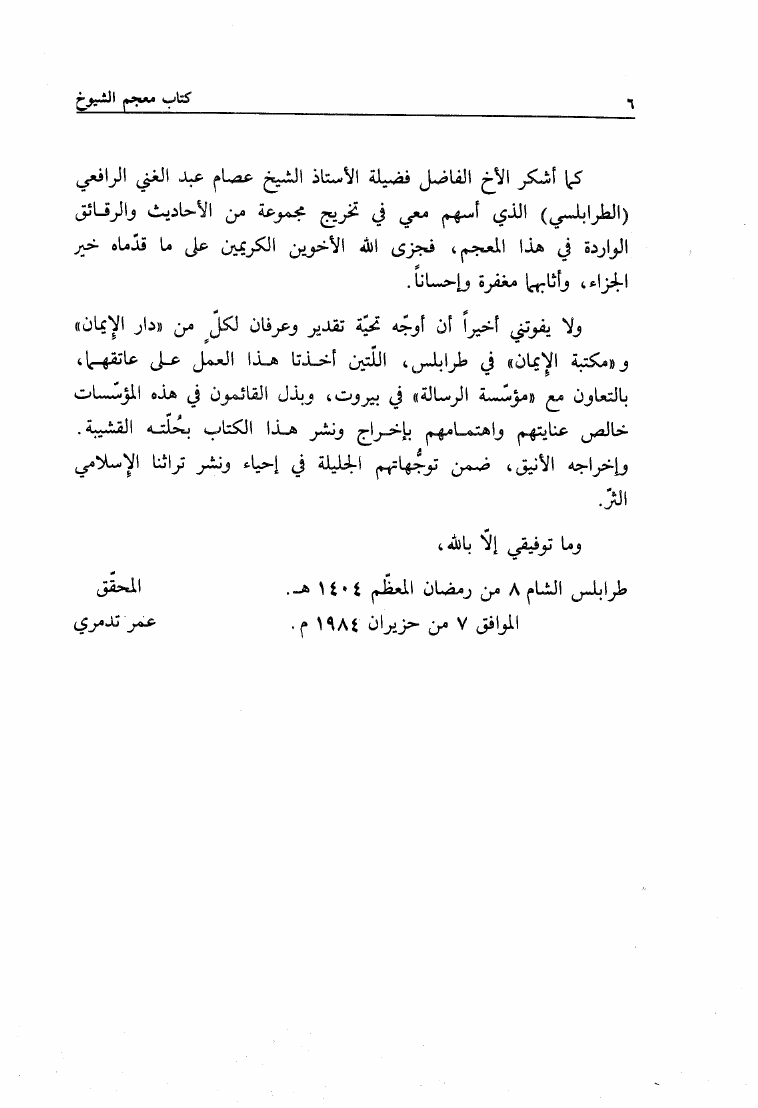 ٦ كتاب معجم الشيوخ
كما أشكر الأخ الفاضل فضيلة الأستاذ الشيخ عصام عبد الغني الرافعي
(الطرابلسي) الذي أسهم معي في تخريج مجموعة من الأحاديث والرقـائق
الواردة في هذا المعجم، فجزى الله الأخوين الكريمين على ما قدّماه خير
الجزاء، وأثابهما مغفرة وإحساناً.
ولا يفوتني أخيراً أن أوجّه تحيّة تقدير وعرفان لكلّ من «دار الإيمان»
و«مكتبة الإيمان» في طرابلس، اللّتين أخـذتا هـذا العمل عـلى عاتقهـما،
بالتعاون مع «مؤسّسة الرسالة» في بيروت، وبذل القائمون في هذه المؤسّسات
خالص عنايتهم واهتمـامهم بإخـراج ونشر هـذا الكتاب بحُلّتـه القشيبة.
وإخراجه الأنيق، ضمن توجُّهاتهم الجليلة في إحياء ونشر تراثنا الإسلامي
الثرّ.
وما توفيقي إلّا بالله،
طرابلس الشام ٨ من رمضان المعظّم ١٤٠٤ هـ. المحقّق
الموافق ٧ من حزيران ١٩٨٤ م. عمر تدمري